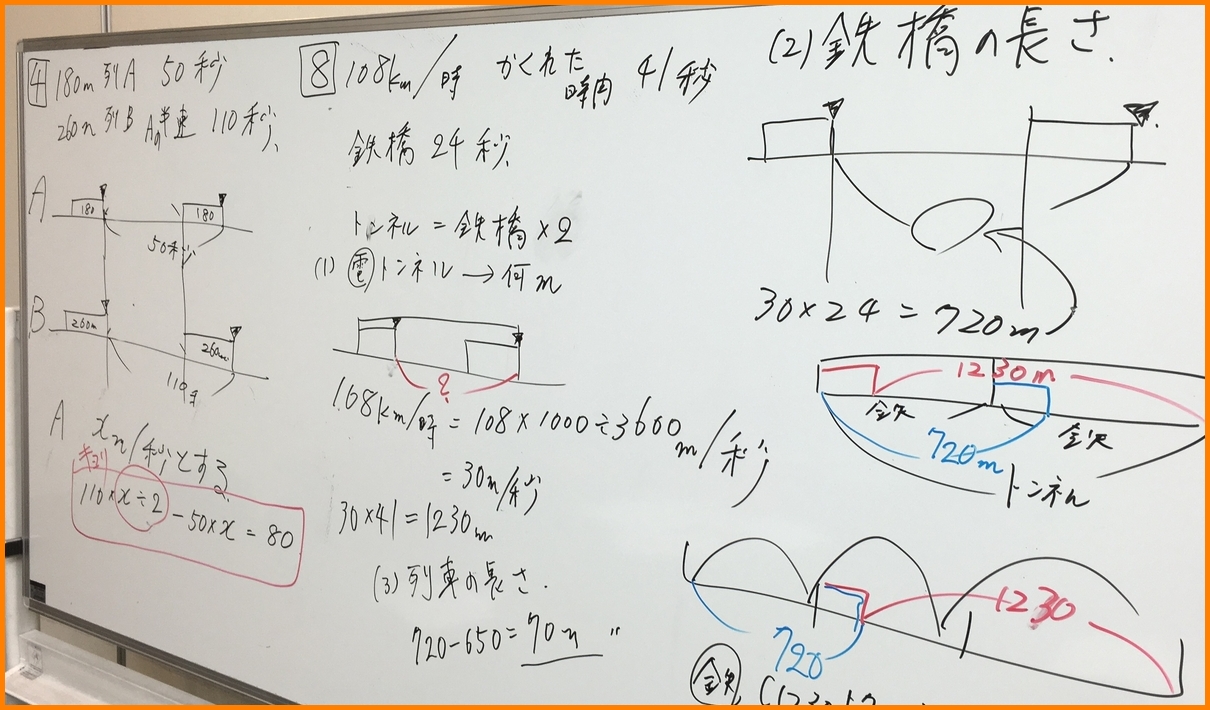 4 180m 列A 50秒
260m 列B Aの半速 110秒
A
180
180
50秒
B
260m
260m
110秒
A xm/秒とする
キョリ
110×x÷2-50×x=80
8 108km/時 かくれた時間 41秒
鉄橋 24秒
トンネル=鉄橋×2
(1) 電 トンネル→何m
?
108km/時=108×1000÷3600m/秒
=30m/秒
30×41=1230m
(3) 列車の長さ.
720-650=70m 〃
(2) 鉄橋の長さ.
30×24=720m
1230m
鉄
鉄
720m
トンネル
1230
720
鉄